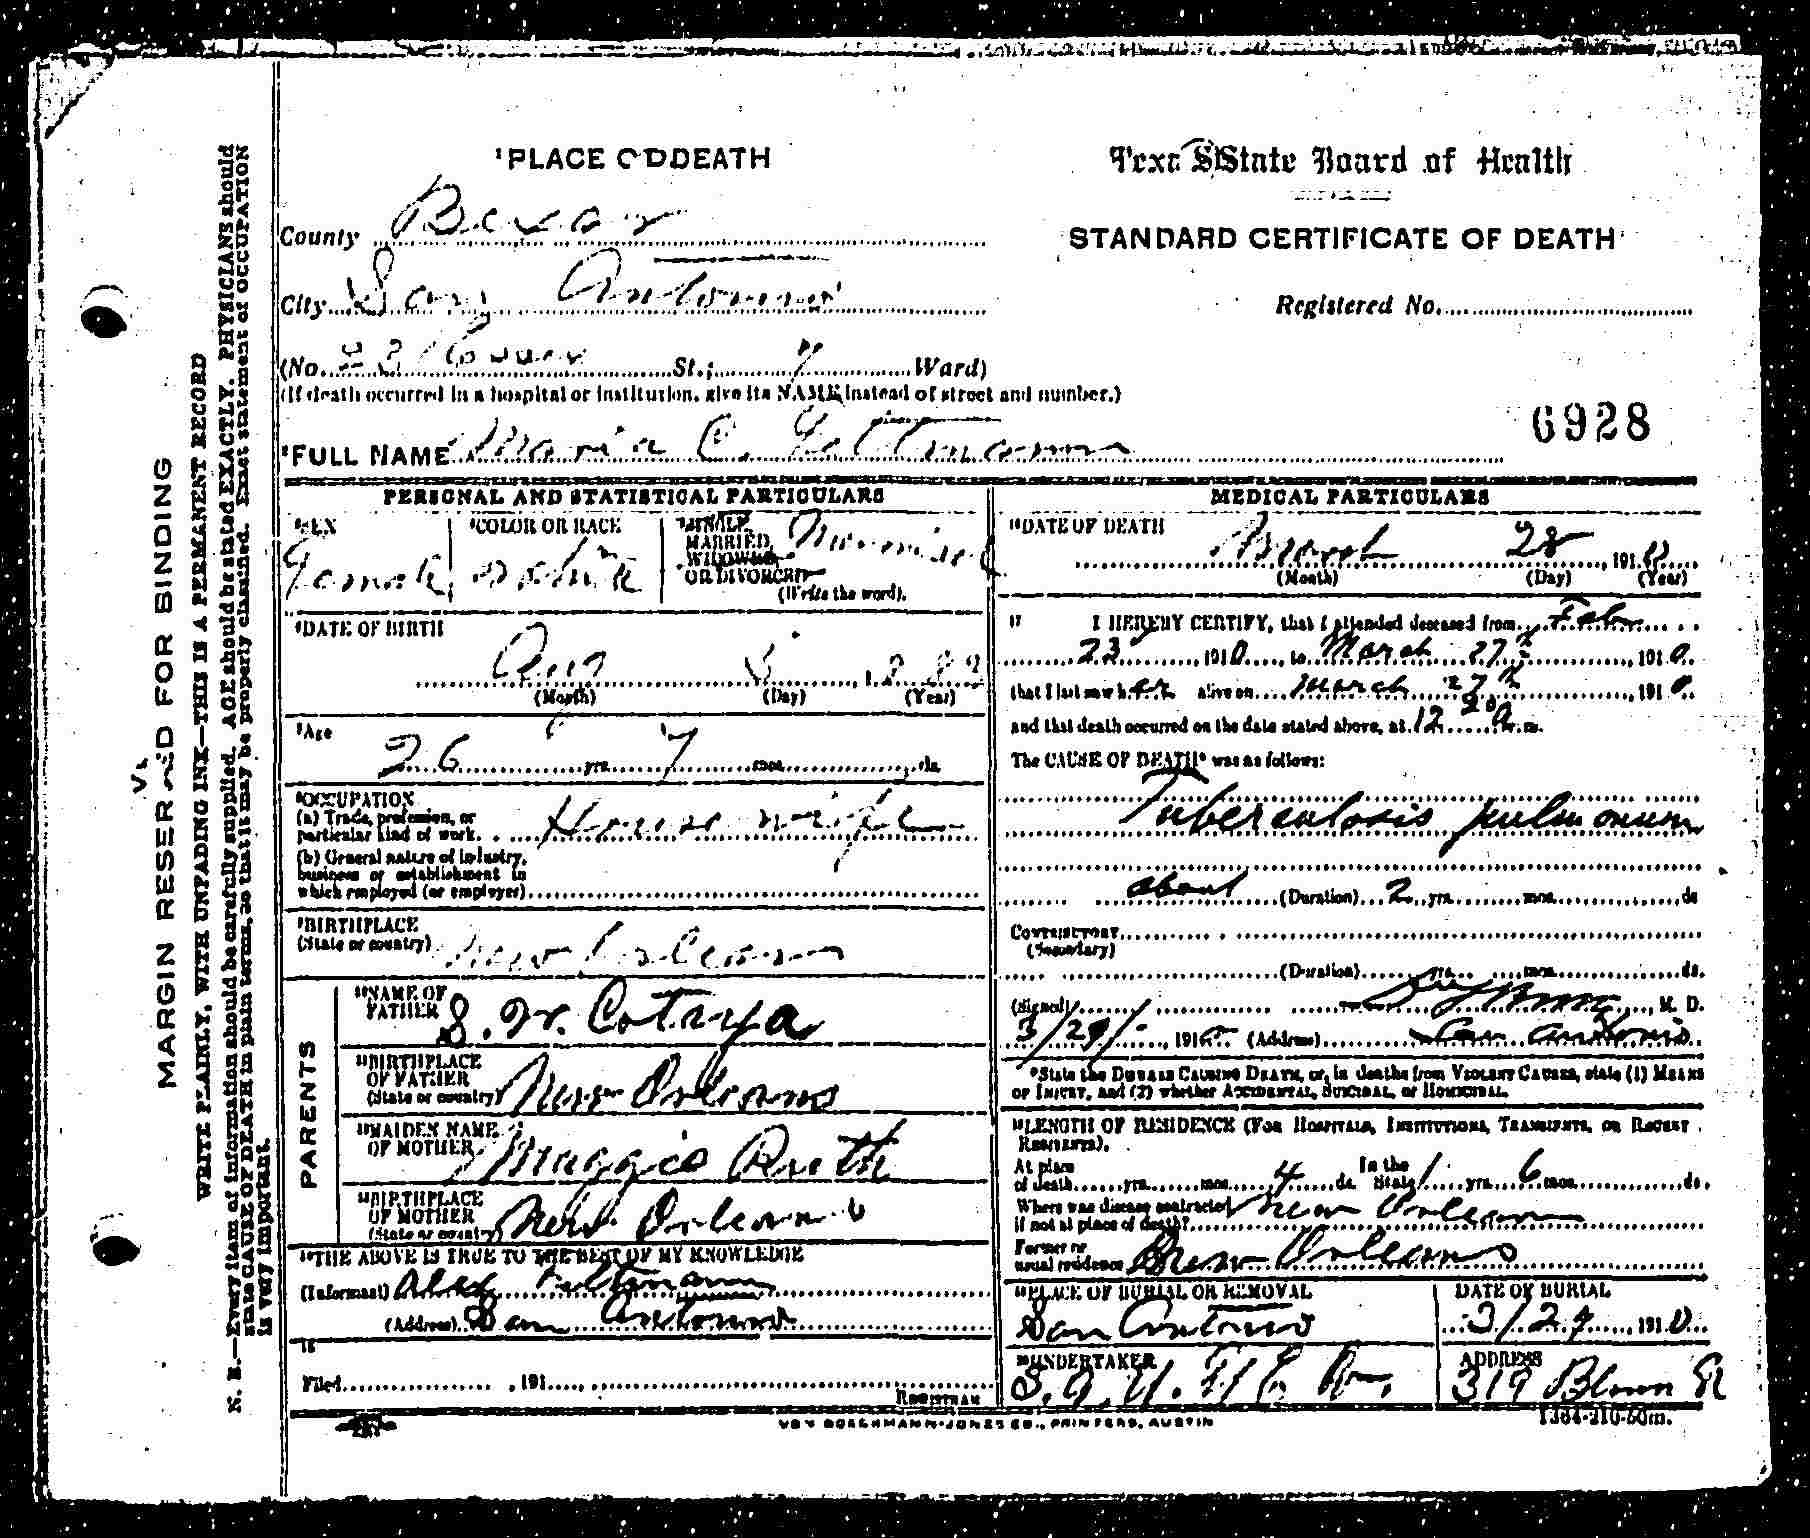 ¹PLACE OF DEATH
Texas State Board of Health
STANDARD CERTIFICATE OF DEATH
County Bexar
City San Antonio
Registered No.
(No. 23 St.; 7 Ward)
(If death occurred in a hospital or institution, give its NAME instead of street and number.)
6928
²FULL NAME Maria C. Feltmann
PERSONAL AND STATISTICAL PARTICULARS
³SEX Female
⁴COLOR OR RACE White
⁵SINGLE, MARRIED, WIDOWED, OR DIVORCED Married
(Write the word).
⁶DATE OF BIRTH
Aug
(Month) (Day) (Year)
⁷Age
26 yrs. 7 mos. ds.
⁸OCCUPATION
(a) Trade, profession, or
particular kind of work. House wife
(b) General nature of industry,
business or establishment in
which employed (or employer)
⁹BIRTHPLACE
(State or country) New Orleans
PARENTS
¹⁰NAME OF
FATHER S. W. Cotaya
¹¹BIRTHPLACE
OF FATHER
(State or country) New Orleans
¹²MAIDEN NAME
OF MOTHER Maggie Ruth
¹³BIRTHPLACE
OF MOTHER
(State or country) New Orleans
¹⁴THE ABOVE IS TRUE TO THE BEST OF MY KNOWLEDGE
(Informant) Alex Feltmann
(Address) San Antonio
¹⁵
Filed , 191
REGISTRAR
MEDICAL PARTICULARS
¹⁶DATE OF DEATH
March 28, 1910
(Month) (Day) (Year)
¹⁷ I HEREBY CERTIFY, that I attended deceased from Feb
23, 1910, to March 27, 1910
that I last saw her alive on March 27, 1910
and that death occurred on the date stated above, at 12 20 a. m.
The CAUSE OF DEATH* was as follows:
Tuberculosis pulmonum
about (Duration) 2 yrs. mos. ds
CONTRIBUTORY
(Secondary)
(Duration) yrs. mos. ds.
(Signed) , M. D.
3/29/, 1910 (Address) San Antonio
*State the DISEASE CAUSING DEATH, or, in deaths from VIOLENT CAUSES, state (1) MEANS
OF INJURY, and (2) whether ACCIDENTAL, SUICIDAL, or HOMICIDAL.
¹⁸LENGTH OF RESIDENCE (FOR HOSPITALS, INSTITUTIONS, TRANSIENTS, OR RECENT
RESIDENTS).
At place
of death yrs. mos. 4 ds. In the State 1 yrs. 6 mos. ds.
Where was disease contracted
if not at place of death? New Orleans
Former or
usual residence New Orleans
¹⁹PLACE OF BURIAL OR REMOVAL
San Antonio
DATE OF BURIAL
3/29, 1910
²⁰UNDERTAKER
ADDRESS
319
VON BOECKMANN-JONES CO., PRINTERS, AUSTIN
MARGIN RESERVED FOR BINDING
WRITE PLAINLY, WITH UNFADING INK—THIS IS A PERMANENT RECORD
N. B.—Every item of information should be carefully supplied. AGE should be stated EXACTLY. PHYSICIANS should
state CAUSE OF DEATH in plain terms, so that it may be properly classified. Exact statement of OCCUPATION
is very important.